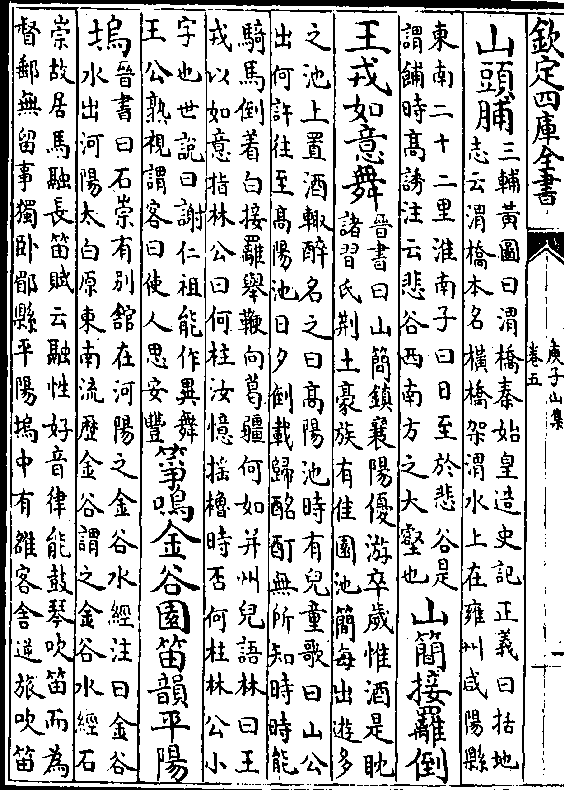 欽定四庫全書
庾子山集
卷五
山頭脯
三輔黃圖曰渭橋秦始皇造史記正義曰括地
志云渭橋本名橫橋架渭水上在雍州咸陽縣
東南二十二里淮南子曰日至於悲谷是
謂餔時高誘注云悲谷西南方之大壑也
山簡接䍦倒
王戎如意舞
晉書曰山簡鎮襄陽優游卒歲惟酒是眈
諸習氏荆土豪族有佳園池簡每出遊多
之池上置酒輙醉名之曰高陽池時有兒童歌曰山公
出何許往至高陽池日夕倒載歸酩酊無所知時時能
騎馬倒着白接䍦舉鞭向葛疆何如并州兒語林曰王
戎以如意指林公曰何柱汝憶摇櫓時否何柱林公小
字也世說曰謝仁祖能作異舞
王公熟視謂客曰使人思安豐
筝鳴金谷園笛韻平陽
塢
晉書曰石崇有別舘在河陽之金谷水經注曰金谷
水出河陽太白原東南流歷金谷謂之金谷水經石
崇故居馬融長笛賦云融性好音律能鼓琴吹笛而為
督郵無留事獨卧郿縣平陽塢中有雒客舍逆旅吹笛